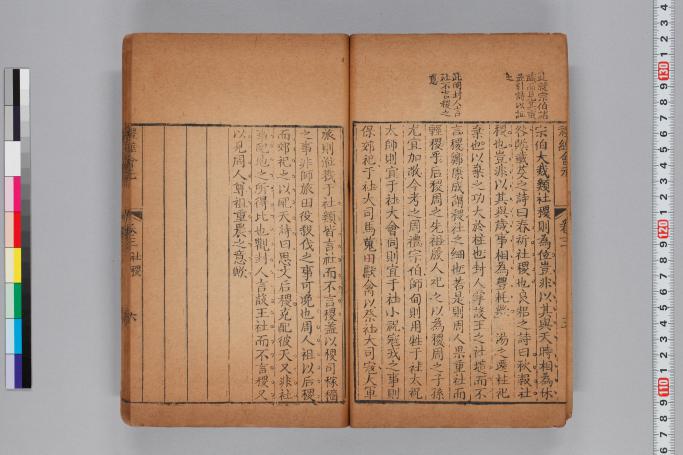 宗伯大烖類社稷則為位豈非以其與天時相為休
咎歟載芟之詩曰春祈社稷也良耜之詩曰秋報社
稷也豈非以其與歲事相為豐耗歟 湯之遷社祀
棄也以棄之功大於柱也封人掌設王之社壝而不
言稷鄭康成謂稷社之細也若是則周人果重社而
輕稷乎后稷周之先祖殷人祀之以為稷周之子孫
尤宜加敬今考之周禮宗伯師甸則用牲于社太祝
太師則宜于社大會同則宜于社小祝寇戎之事則
保郊祀于社大司馬蒐田獻禽以祭社大司寇大軍
旅則涖戮于社類皆言社而不言稷蓋以稷司稼穡
之事非師旅田役殺伐之事可凂也周人祖以后稷
而郊祀之以配天詩曰思文后稷克配彼天又非社
事配地之所得比也觀封人言設王社而不言稷又
以見周人尊祖重農之意歟
卷三 社稷
六
此周封人言
社不言稷之
意